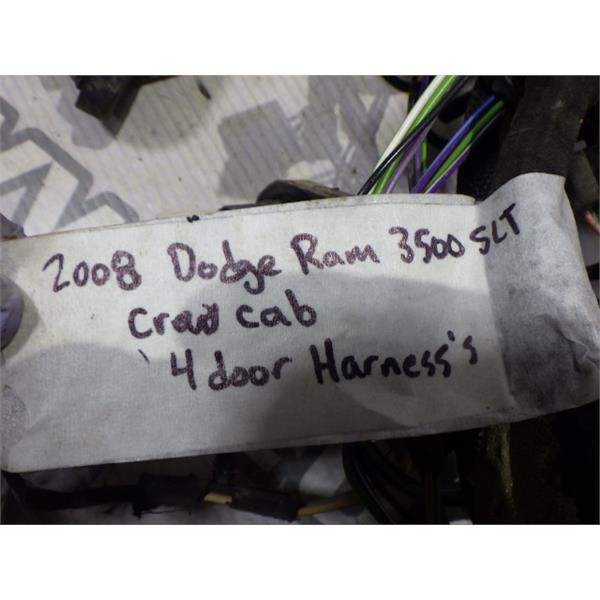 2008 Dodge Ram 3500 SLT
Crew cab
4 door Harness's